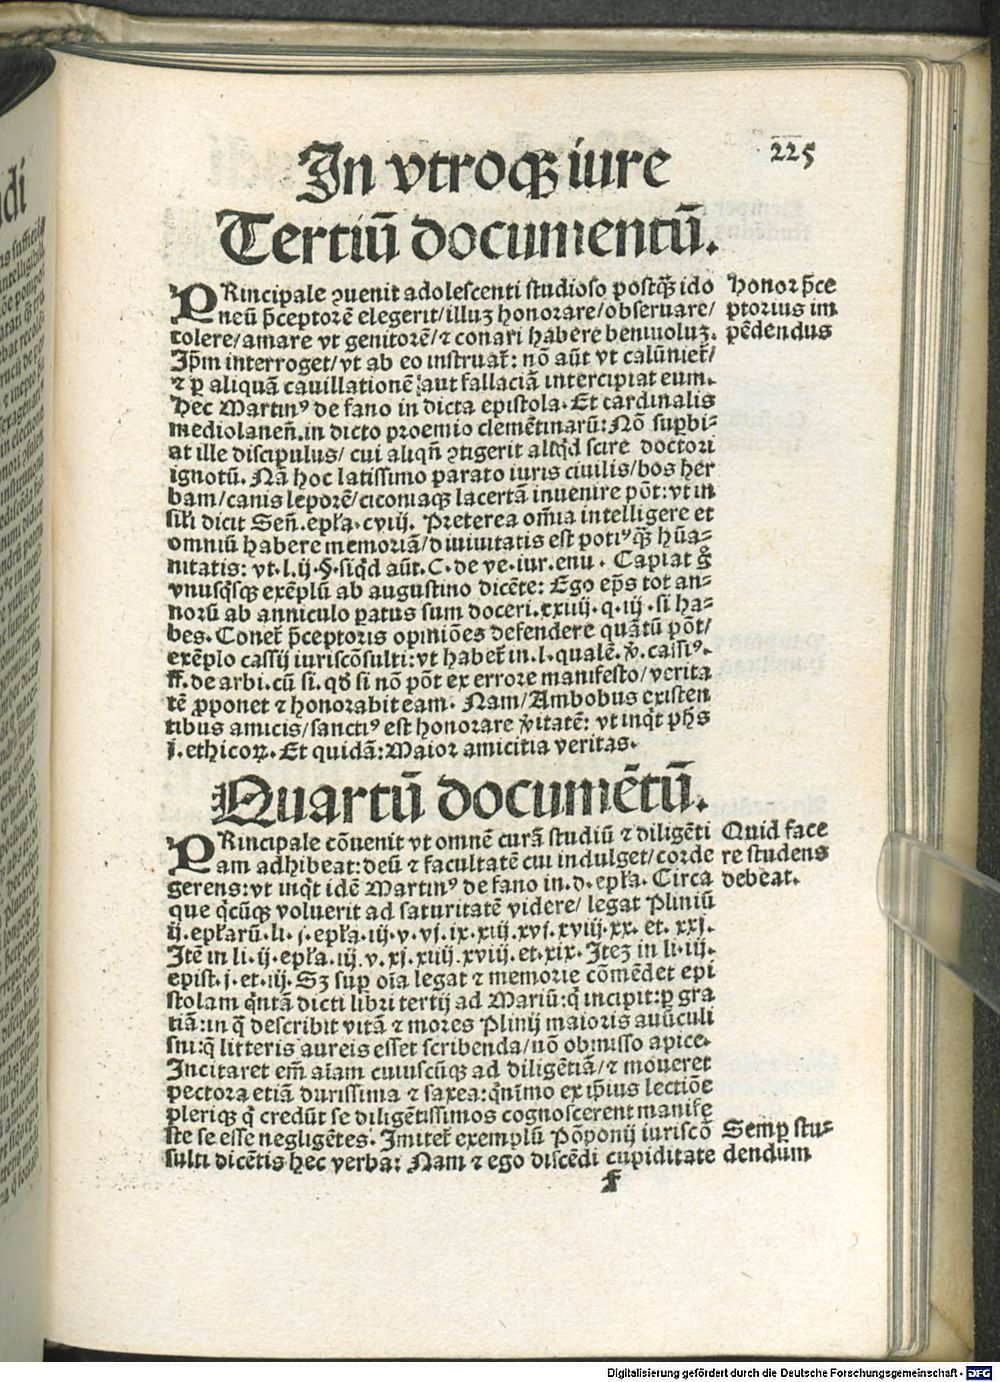 225
In vtroqꝫ iure
Tertiū documentū.
PRincipale ꝯuenit adolescenti studioso postqꝫ ido
neū p̄ceptorē elegerit/illuꝫ honorare/obseruare/
colere/amare vt genitorē/⁊ conari habere beniuoluꝫ.
Ip̄m interroget/vt ab eo instruat̄: nō aūt vt calūniet̄/
⁊ ꝑ aliquā cauillationē/aut fallaciā intercipiat eum.
Hec Martinꝰ de fano in dicta epistola. Et cardinalis
mediolaneñ.in dicto proemio clemētinarū: Nō suꝑbi-
at ille discipulus/ cui aliqñ ꝯtigerit aliq̇d scire doctori
ignotū. Nā hoc latissimo parato iuris ciuilis/bos her
bam/canis leporē/ciconiaqꝫ lacertā inuenire pōt: vt in
sil̄i dicit Señ.epl̄a.cviij. Preterea om̄ia intelligere et
omniū habere memoriā/diuinitatis est potiꝰqꝫ hūa-
nitatis: vt.l.ij.§.siq̇d aūt.C.de ve.iur.enu. Capiat g̊
vnusq̇sqꝫ exēplū ab augustino dicēte: Ego ep̄s tot an-
norū ab anniculo patus sum doceri.xxiiij.q.iij.si ha-
bes. Conet̄ p̄ceptoris opiniōes defendere quātū pōt/
exēplo cassij iuriscōsulti: vt habet̄ in.l.qualē.ꝟ.cassiꝰ.
ff.de arbi.cū si.qđ si nō pōt ex errore manifesto/verita
tē ꝓponet ⁊ honorabit eam. Nam/Ambobus existen
tibus amicis/sanctiꝰ est honorare ꝟitatē: vt inq̇t ph̄s
j.ethicoꝝ. Et quidā: Maior amicitia veritas.
Honor p̄ce
ptorius im
pēdendus
Quartū documētū.
PRincipale cōuenit vt omnē curā studiū ⁊ diligēti
am adhibeat: deū ⁊ facultatē cui indulget/corde
gerens: vt inq̇t idē Martinꝰ de fano in.d.epl̄a. Circa
que q̇cūqꝫ voluerit ad saturitatē videre/ legat Pliniū
ij.epl̄arū.li.j.epl̄a.iij.v.vj.ix.xiij.xvj.xviij.xx.et.xxj.
Itē in li.ij.epl̄a.iij.v.xj.xiij.xviij.et.xix. Iteꝫ in li.iij.
epist.j.et.iij. Sꝫ suꝑ oīa legat ⁊ memorie cōmēdet epi
stolam q̇ntā dicti libri tertij ad Mariū: q̄ incipit: ꝑ gra
tiā: in q̄ describit vitā ⁊ mores Plinij maioris auūculi
sui: q̄ litteris aureis esset scribenda/nō obmisso apice.
Incitaret em̄ aīam cuiuscūqꝫ ad diligētiā/⁊ moueret
pectora etiā durissima ⁊ saxea: q̇nimo ex ip̄ius lectiōe
pleriqꝫ q̇ credūt se diligētissimos cognoscerent manife
ste se esse negligētes. Imitet̄ exemplū Pōponij iuriscō
sulti dicētis hec verba: Nam ⁊ ego discēdi cupiditate
Quid face
re studens
debeat.
Semꝑ stu-
dendum
f
Digitalisierung gefördert durch die Deutsche Forschungsgemeinschaft - DFG